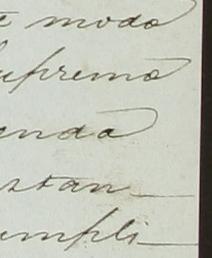 e modo
suprema
enda
stan
umpli